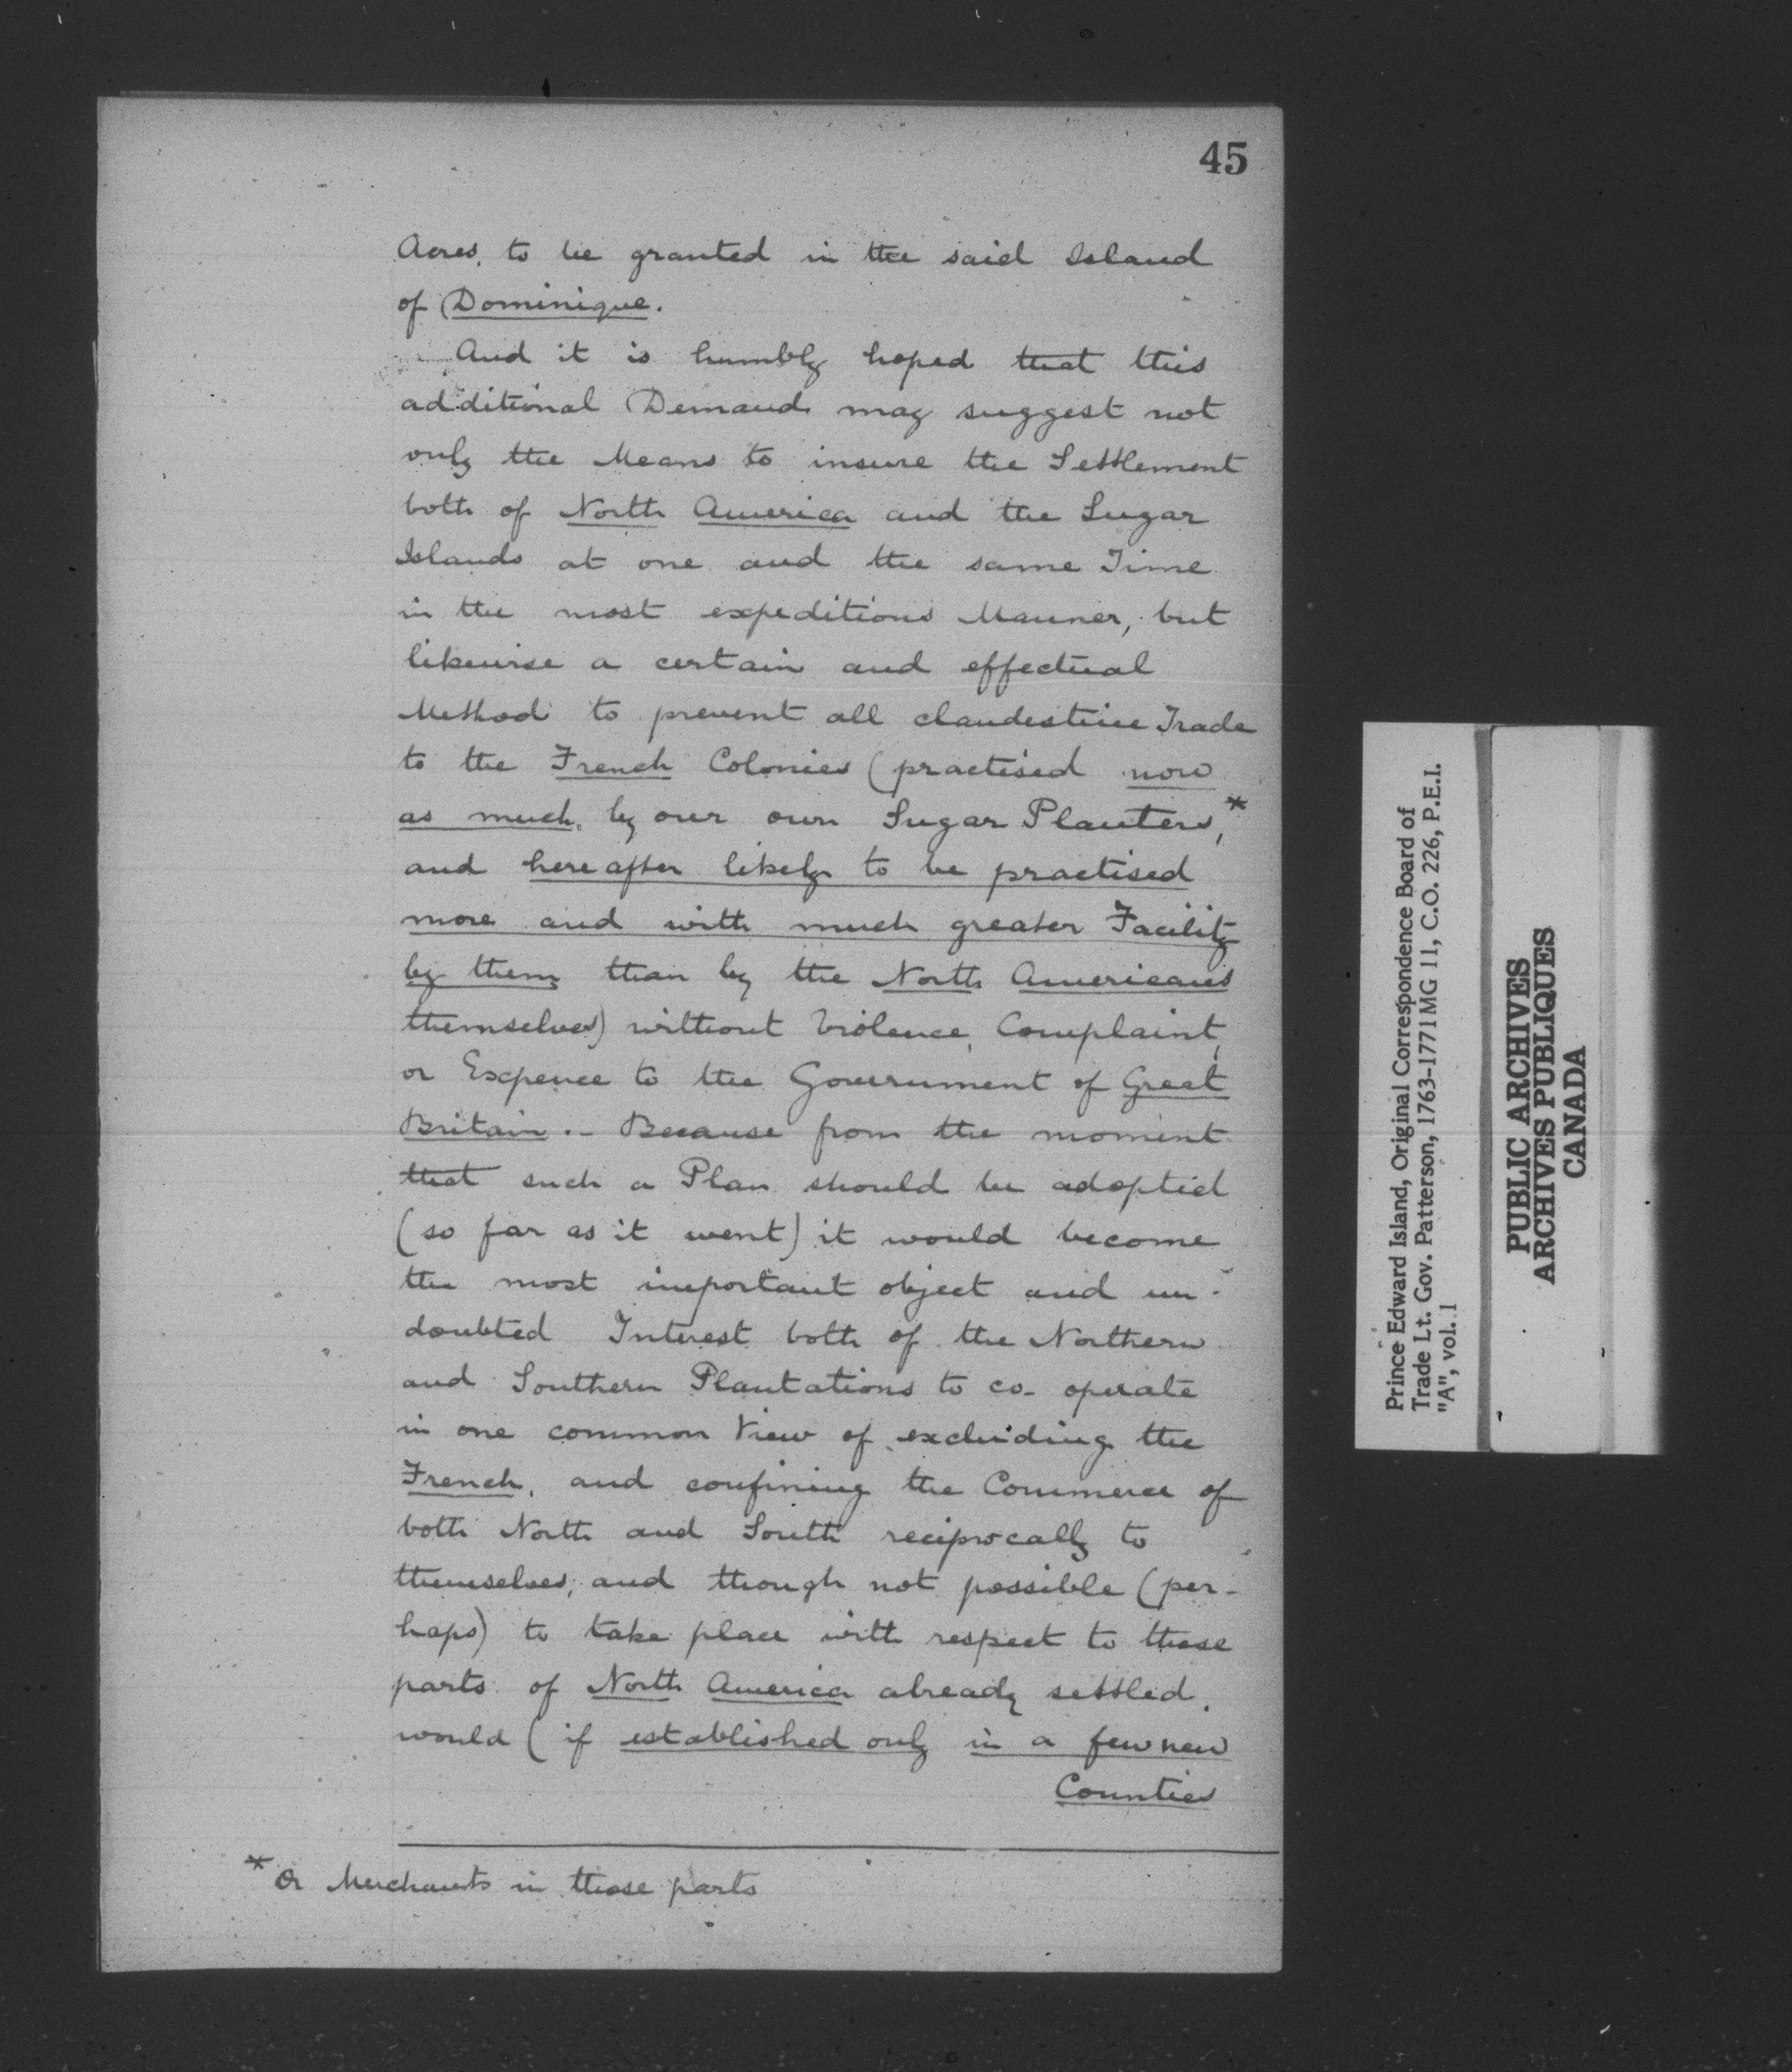 45
Acres, to be granted in the said Island
of Dominique.
And it is humbly hoped that this
additional Demand may suggest not
only the Means to insure the Settlement
both of North America and the Sugar
Islands at one and the same Time
in the most expeditious Manner, but
likewise a certain and effectual
Method to prevent all clandestine Trade
to the French Colonies (practised now
as much by our own Sugar Planters,*
and hereafter likely to be practised
more and with much greater Facility
by them than by the North Americans
themselves) without Violence, Complaint,
or Expence to the Government of Great
Britain.- Because from the moment
that such a Plan should be adopted
(so far as it went) it would become
the most important object and un-
doubted Interest both of the Northern
and Southern Plantations to co-operate
in one common View of excluding the
French, and confining the Commerce of
both North and South reciprocally to
themselves, and though not possible (per-
haps) to take place with respect to those
parts of North America already settled,
would (if established only in a few new
Counties
* Or Merchants in those parts
Prince Edward Island, Original Correspondence Board of
Trade Lt. Gov. Patterson, 1763-1771 MG 11, C.O. 226, P.E.I.
"A", vol. 1
PUBLIC ARCHIVES
ARCHIVES PUBLIQUES
CANADA